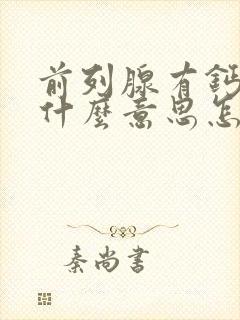 前列腺有鈣
什麼意思怎
秦尚書